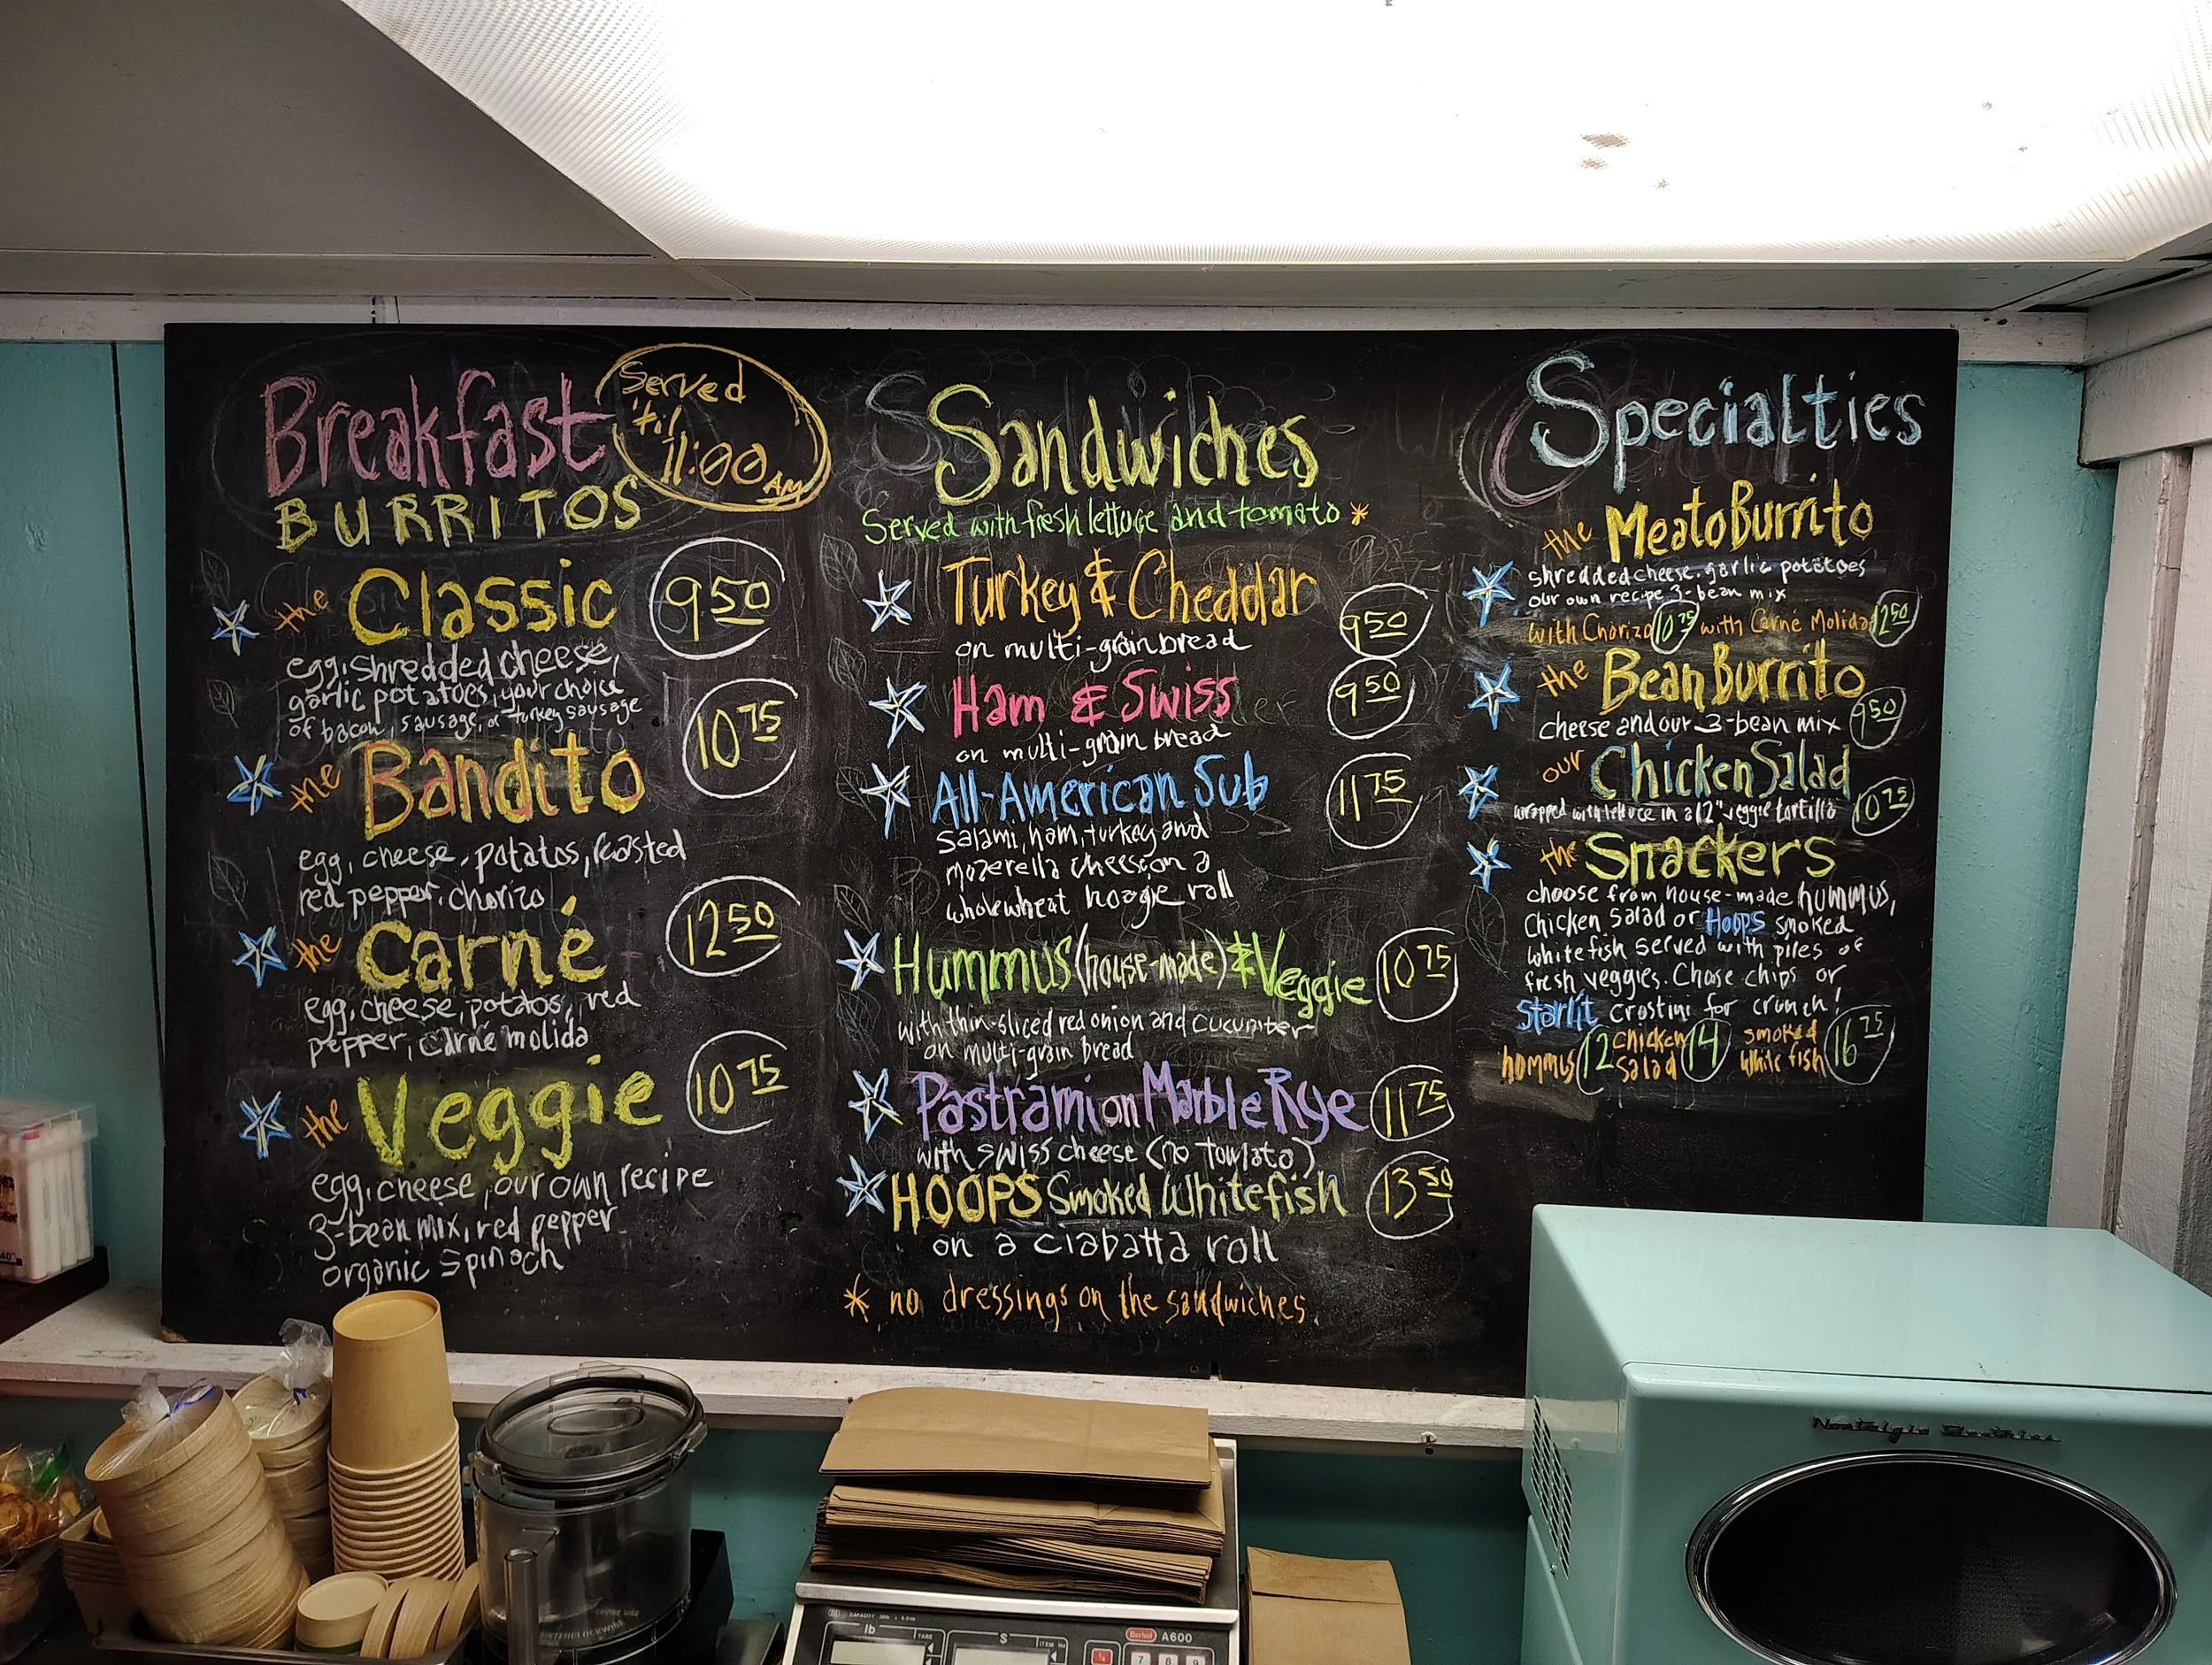 Breakfast
BURRITOS
Served
'til
11:00 AM
the Classic 9.50
egg, shredded cheese,
garlic potatoes, your choice
of bacon, sausage, or turkey sausage
the Bandito 10 75
egg, cheese, potatos, roasted
red pepper, chorizo
the Carné 12 50
egg, cheese, potatos, red
pepper, Carné molida
the Veggie 10 75
egg, cheese, our own recipe
3-bean mix, red pepper
organic spinach
Sandwiches
Served with fresh lettuce and tomato *
Turkey & Cheddar 9 50
on multi-grain bread
Ham & Swiss 9 50
on multi-grain bread
All-American Sub 11 75
Salami, ham, turkey and
mozerella cheese, on a
whole wheat hoagie roll
Hummus (house-made) & Veggie 10 75
with thin-sliced red onion and cucumber
on multi-grain bread
Pastrami on Marble Rye 11 75
with swiss cheese (no tomato)
HOOPS Smoked Whitefish 13 50
on a ciabatta roll
* no dressings on the sandwiches
Specialties
the Meato Burrito
shredded cheese, garlic potatoes
our own recipe 3-bean mix
with Chorizo 10 75 with Carné Molida 12 50
the Bean Burrito
cheese and our 3-bean mix 9 50
our Chicken Salad
wrapped with lettuce in a 12" veggie tortilla 10 75
the Snackers
choose from house-made hummus,
Chicken salad or Hoops smoked
white fish served with piles of
fresh veggies. Chose chips or
Starlit crostini for crunch!
hommus 12 chicken salad 14 smoked white fish 16 75
Nostalgia Electrics
CAPACITY 30lb x 0.01lb
lb
TARE
$
Berkel A600
7 8 9